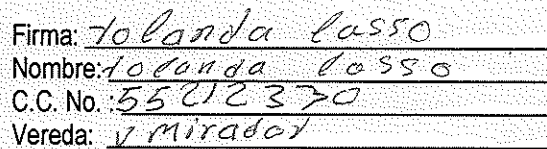 Firma: Yolanda Lasso
Nombre: Yolanda Lasso
C.C. No. : 55212370
Vereda: V mirador